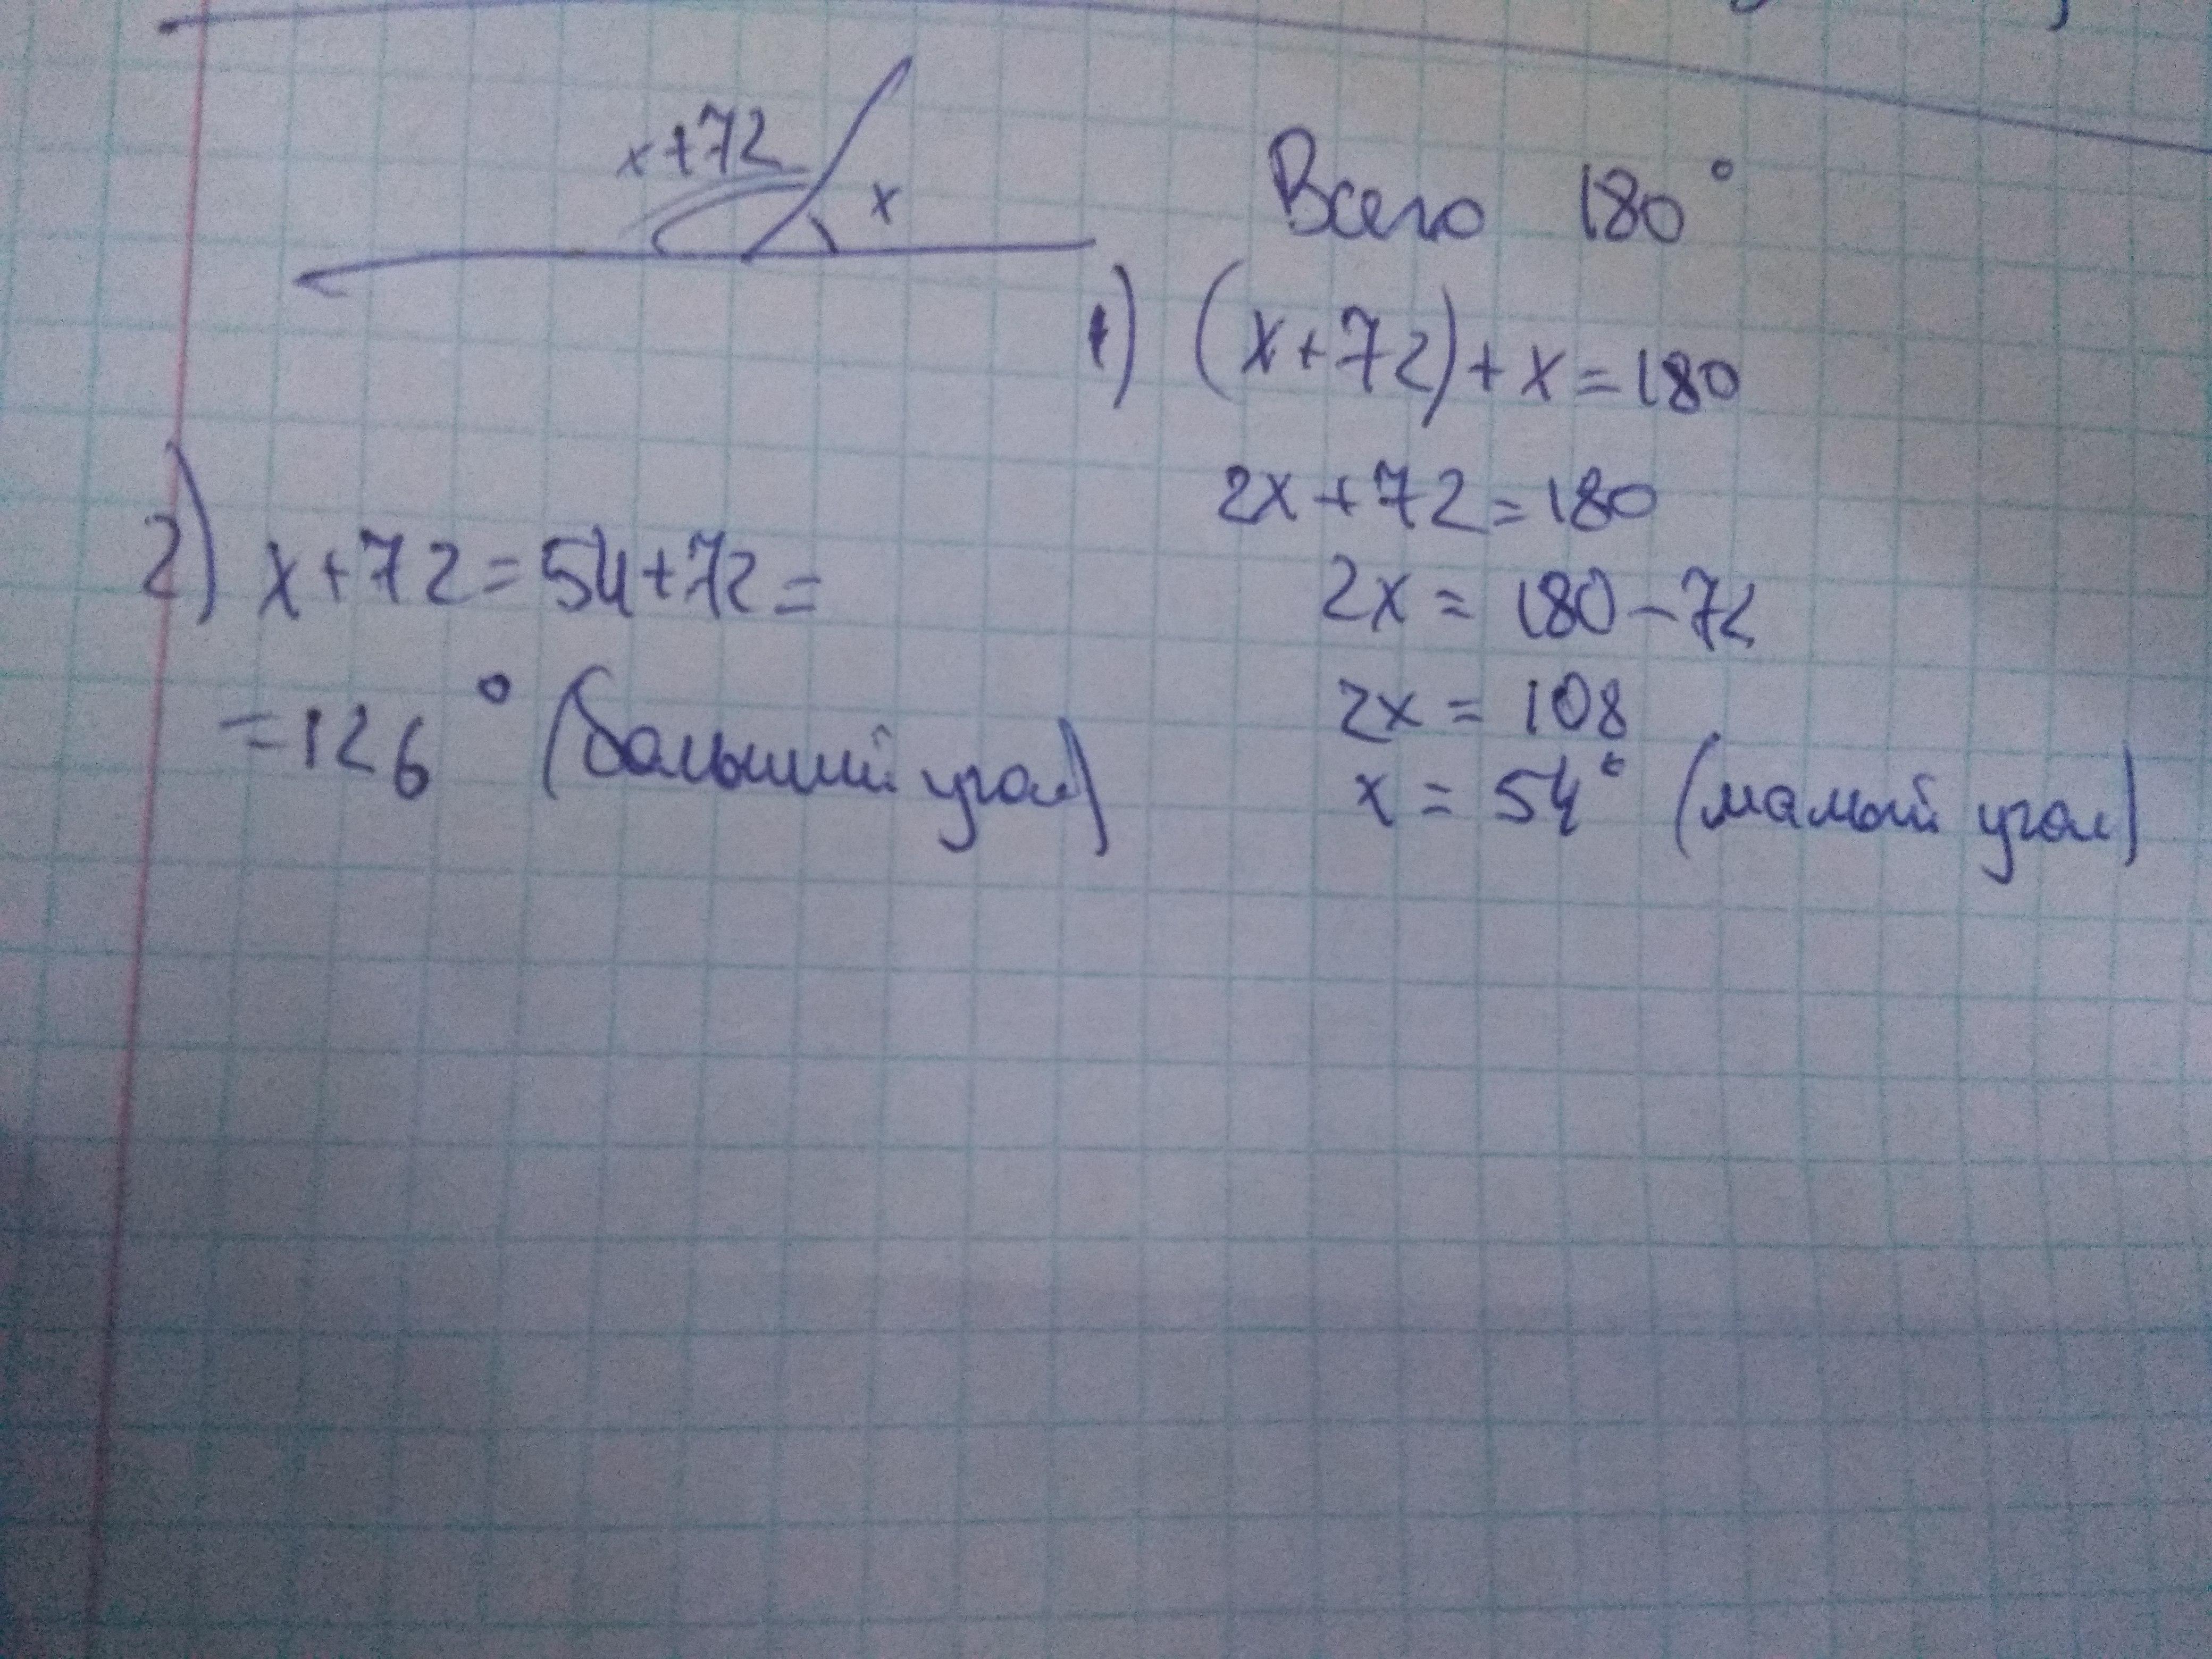 x+72
x
Всего 180°
1) (x+72)+x=180
2x+72=180
2x = 180-72
2x = 108
x = 54° (малый угол)
2) x+72=54+72=
=126° (больший угол)